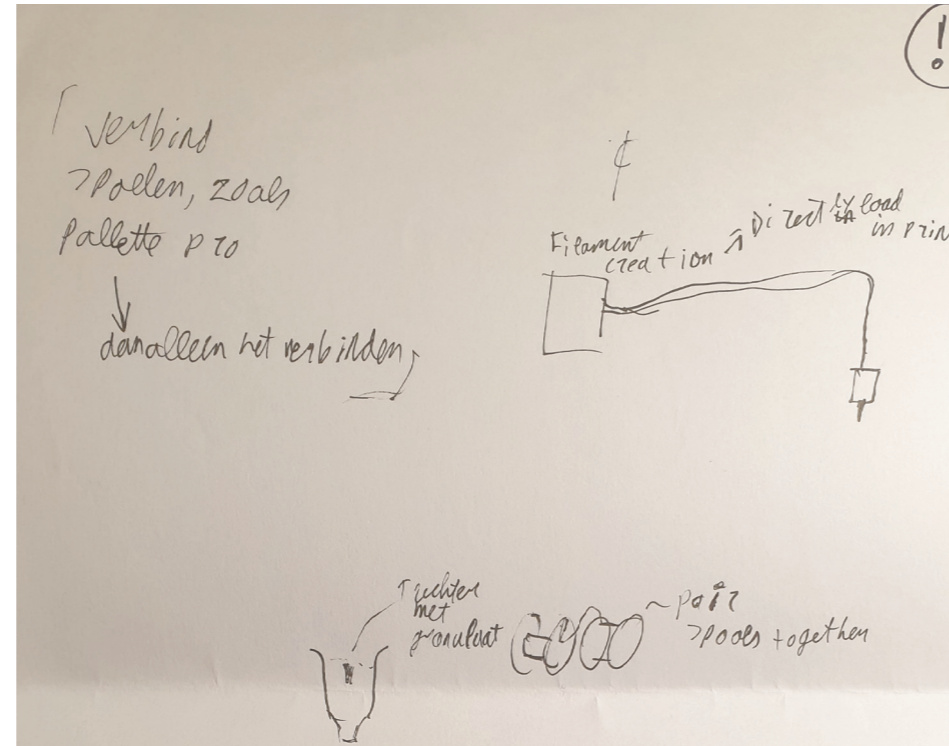 verbind
spoelen, zoals
Pallette pro
dan alleen het verbinden
Filament
creation
Directly load
in prin
Trechter
met
granulaat
pair
spools together
!